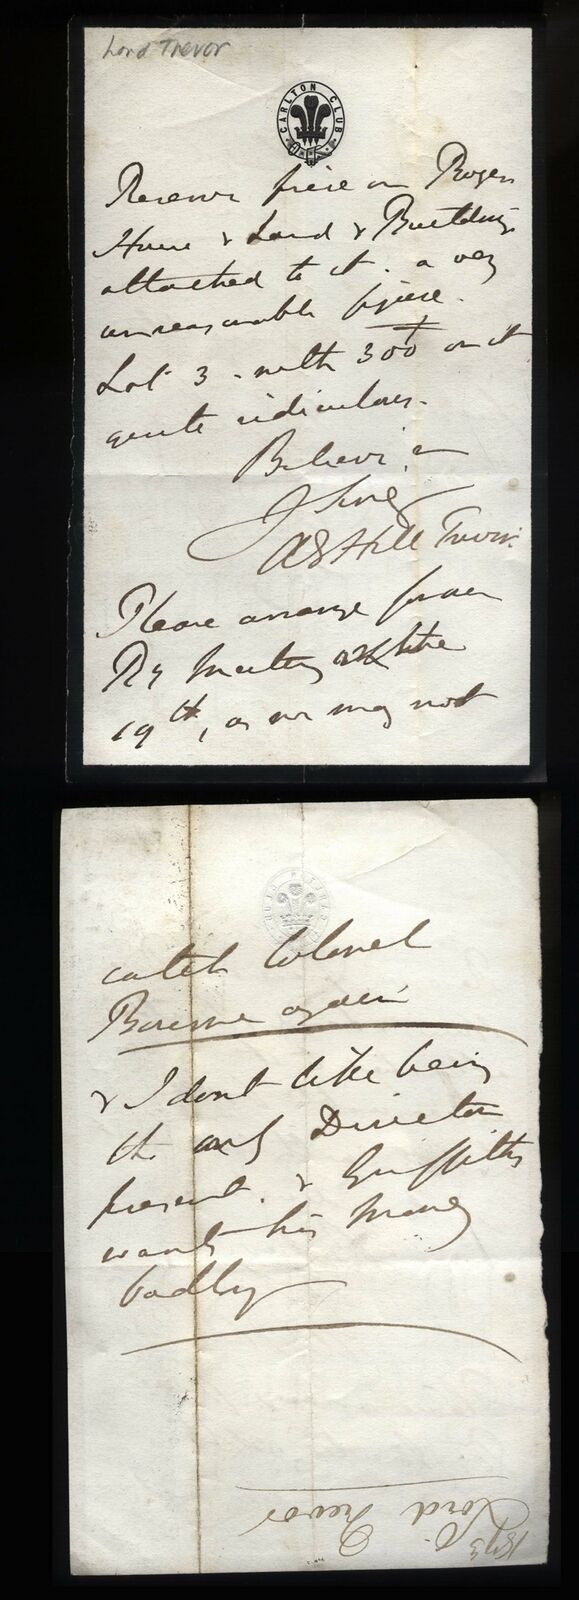 Lord Trevor
CARLTON CLUB
Reserve price on
House & Land & Buildings
attached to it. a very
unreasonable figure.
Lot 3 - with 300£ on it
quite ridiculous.
Believe me
A E Hill Trevor
Please arrange for our
Ry Meeting the
19th, as we may not
catch Colonel
again
& I dont like being
the only Director
present. & Griffiths
wants his money
badly
Lord Trevor
1873